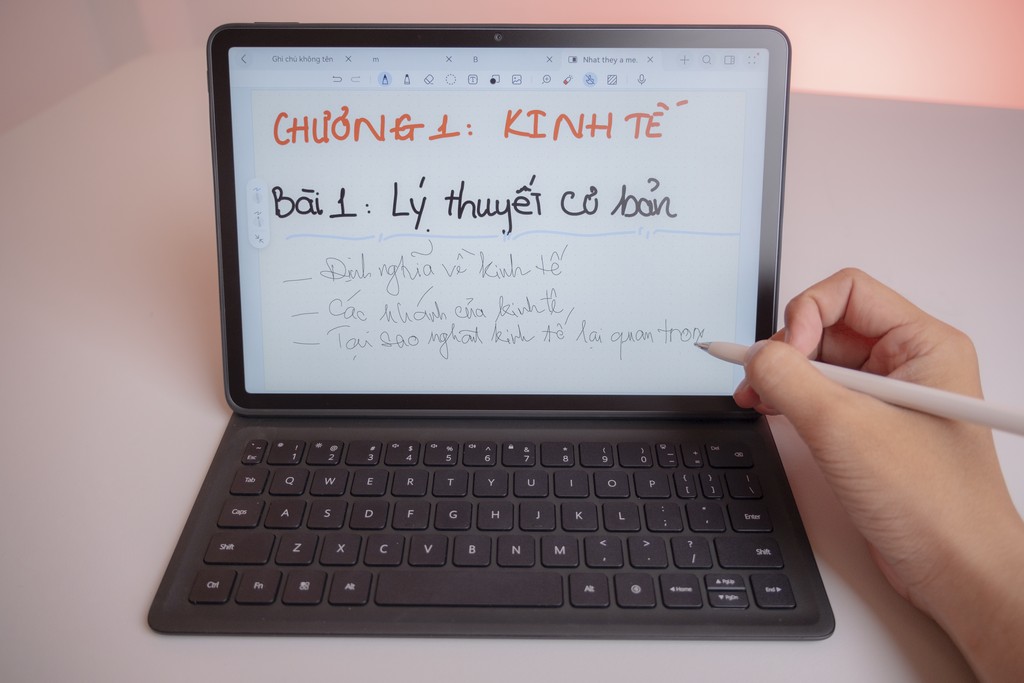 Ghi chú không tên m B Nhat they a me.
CHƯƠNG 1: KINH TẾ
Bài 1: Lý thuyết cơ bản
— Định nghĩa về kinh tế
— Các nhánh của kinh tế
— Tại sao kinh tế lại quan trọn
Esc 1 2 3 4 5 6 7 8 9 0 Del
Tab Q W E R T Y U I O P { [ } ] | \
Caps A S D F G H J K L : ; " ' Enter
Shift Z X C V B N M < , > . ? / Shift
Ctrl Fn Alt Alt Home PgUp PgDn End